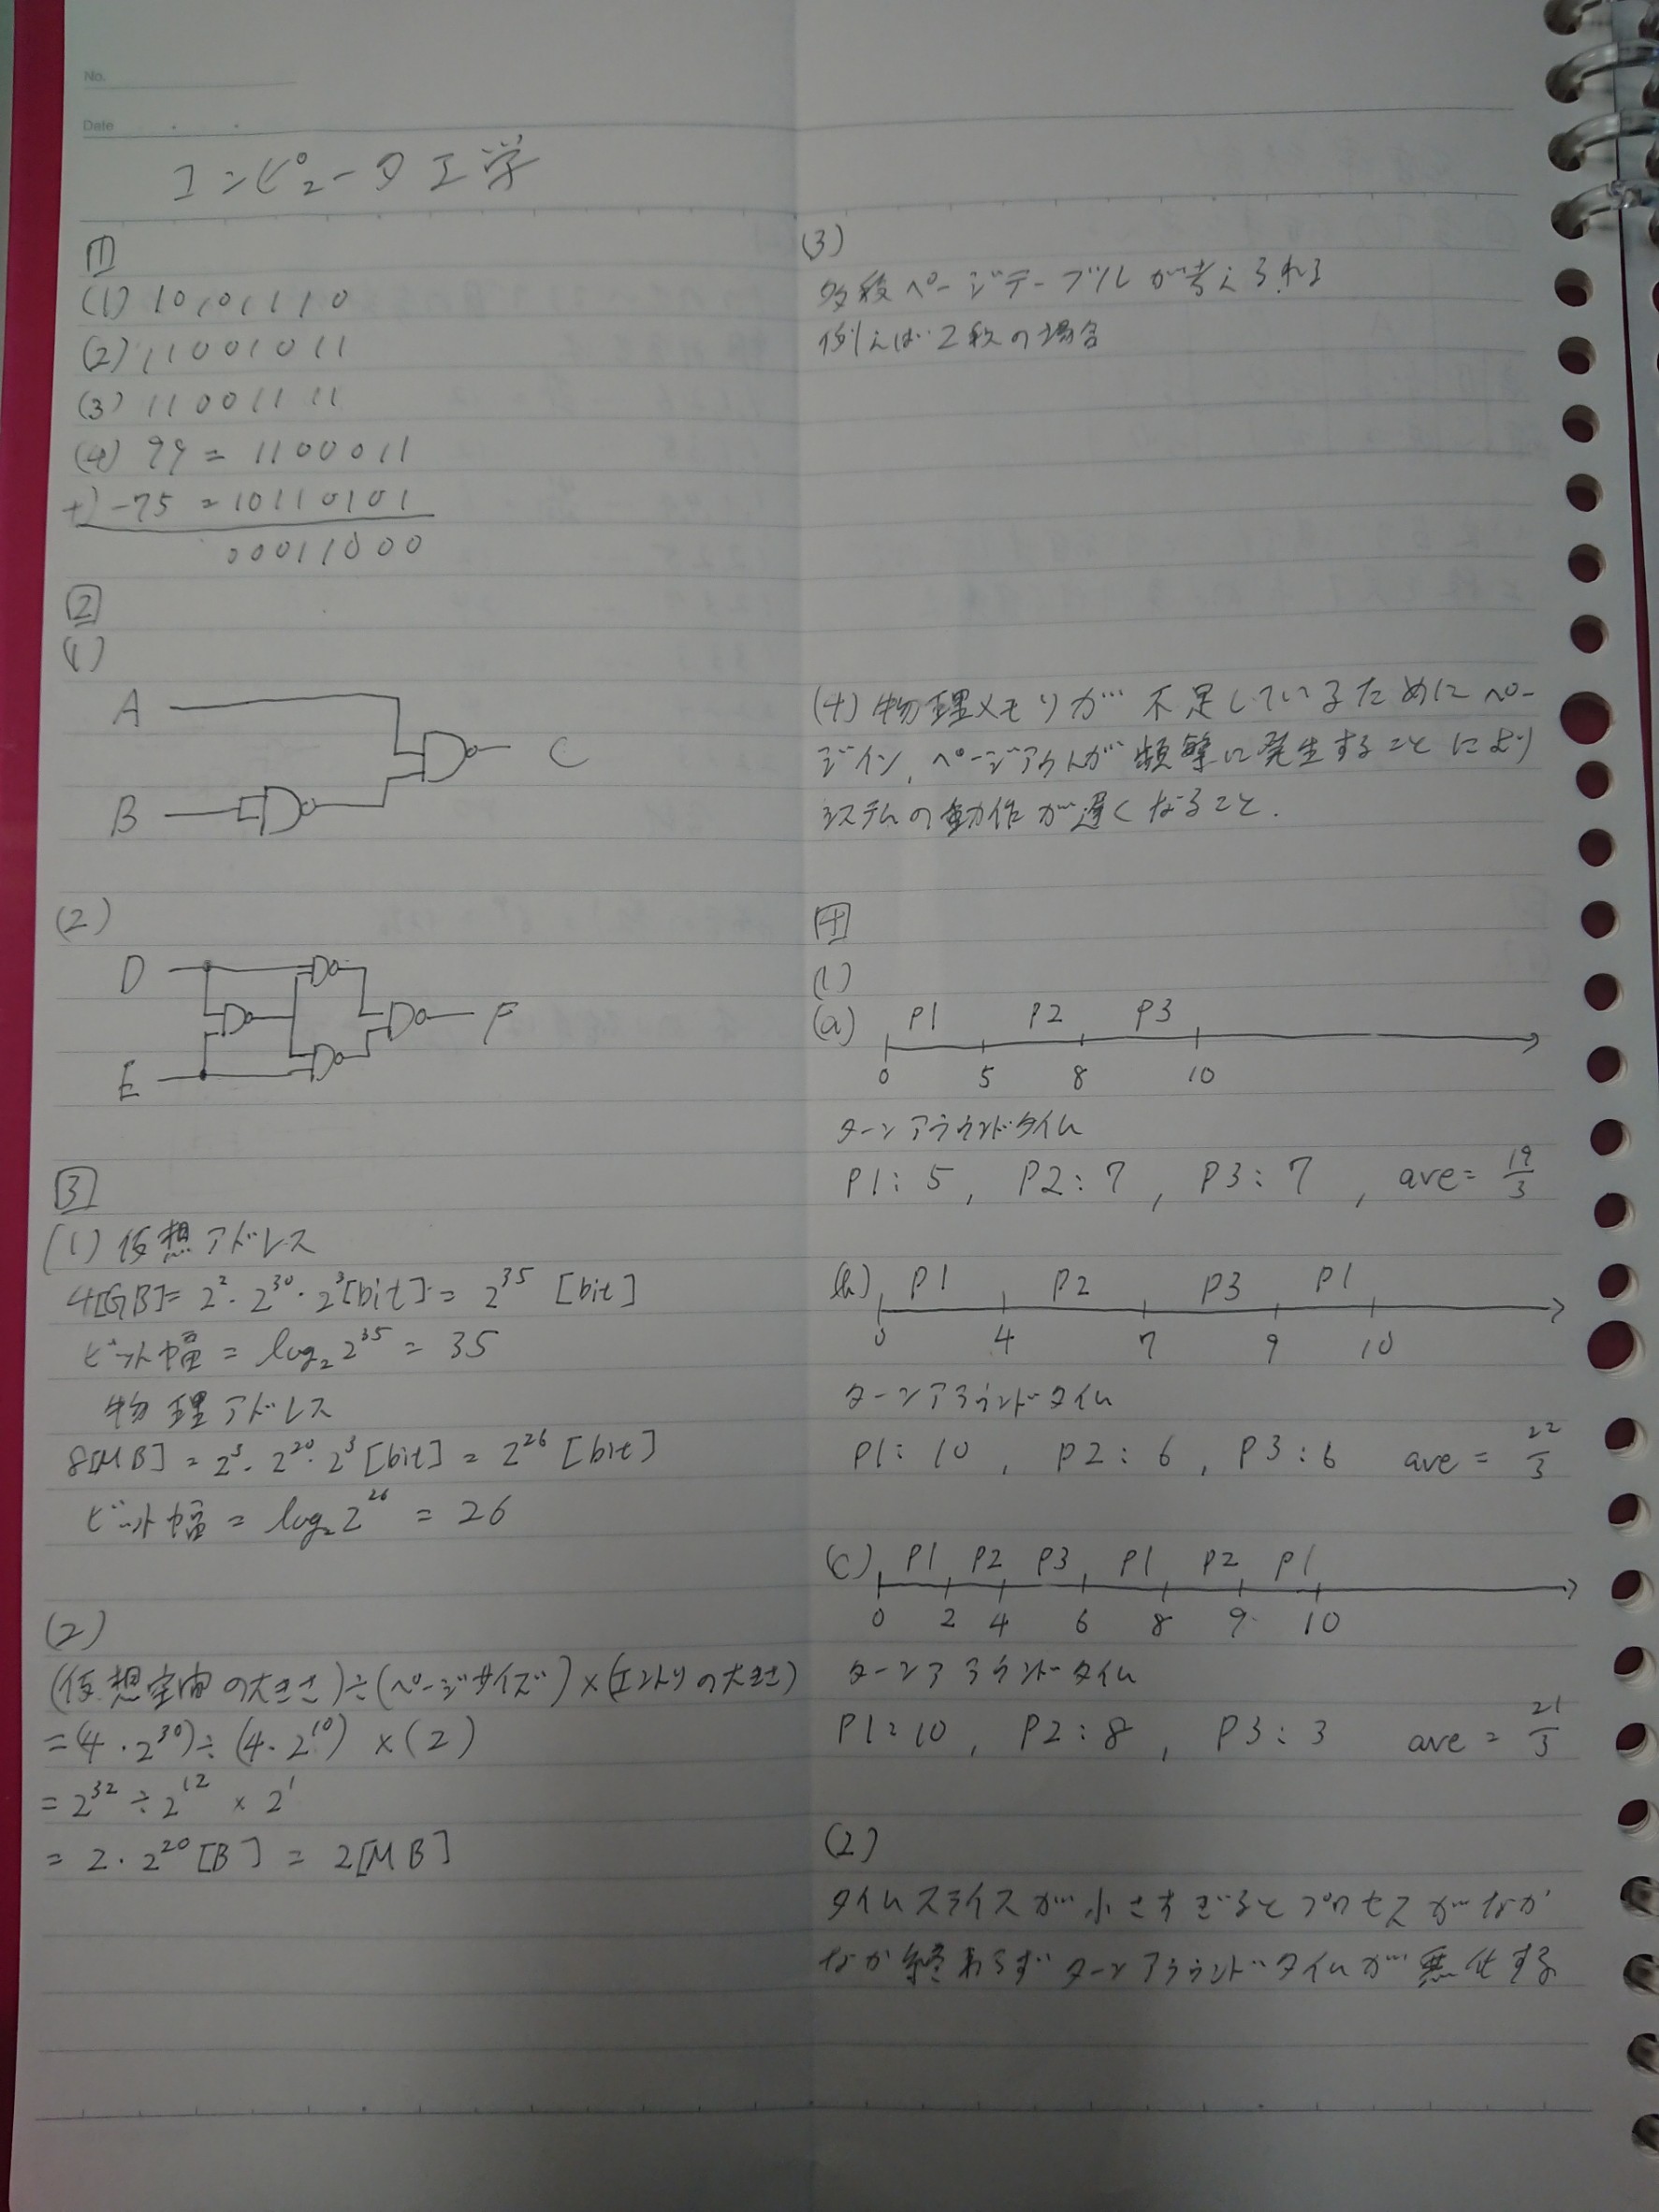 No.
Date
コンピュータ工学
1
(1) 10101110
(2) 11001011
(3) 11001111
(4) 99 = 1100011
+) -75 = 10110101
00011000
2
(1)
A
C
B
(2)
D
F
E
3
(1) 仮想アドレス
4[GB] = 2²・2³⁰・2³[bit] = 2³⁵ [bit]
ビット幅 = log₂ 2³⁵ = 35
物理アドレス
8[MB] = 2³・2²⁰・2³ [bit] = 2²⁶ [bit]
ビット幅 = log₂ 2²⁶ = 26
(2)
(仮想空間の大きさ)÷(ページサイズ)×(エントリの大きさ)
= (4・2³⁰)÷(4・2¹⁰) ×(2)
= 2³² ÷ 2¹² × 2¹
= 2・2²⁰ [B] = 2[MB]
(3)
多段ページテーブルが考えられる
例えば2段の場合
(4) 物理メモリが不足しているためにペー
ジイン,ページアウトが頻繁に発生することにより
システムの動作が遅くなること.
4
(1)
(a) P1 P2 P3
0 5 8 10
ターンアラウンドタイム
P1: 5, P2: 7, P3: 7, ave= 19/3
(b) P1 P2 P3 P1
0 4 7 9 10
ターンアラウンドタイム
P1: 10, P2: 6, P3: 6 ave = 22/3
(c) P1 P2 P3 P1 P2 P1
0 2 4 6 8 9 10
ターンアラウンドタイム
P1: 10, P2: 8, P3: 3 ave = 21/3
(2)
タイムスライスが小さすぎるとプロセスがなか
なか終わらずターンアラウンドタイムが悪化する